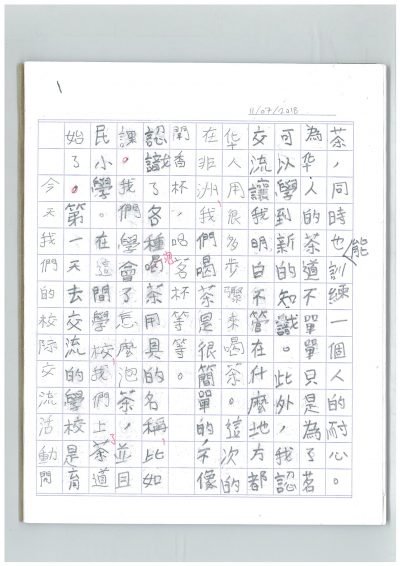 1
11/07/2018
今天我們的校際交流活動開
始了。第一天去交流的學校是育
民小學。在這間學校我們上了茶道
課。我們學會了怎麼泡茶，並且
認識了各種喝茶用具的名稱比如
聞香杯，喝茗杯等等。
在非洲，我們喝茶是很簡單的，不像
华人用很多步驟來喝茶。這次的
交流讓我明白不管在什麼地方都
可以學到新的知識。此外，我認
為华人的茶道不單單只是為了茗
茶，同時也能訓練一個人的耐心。